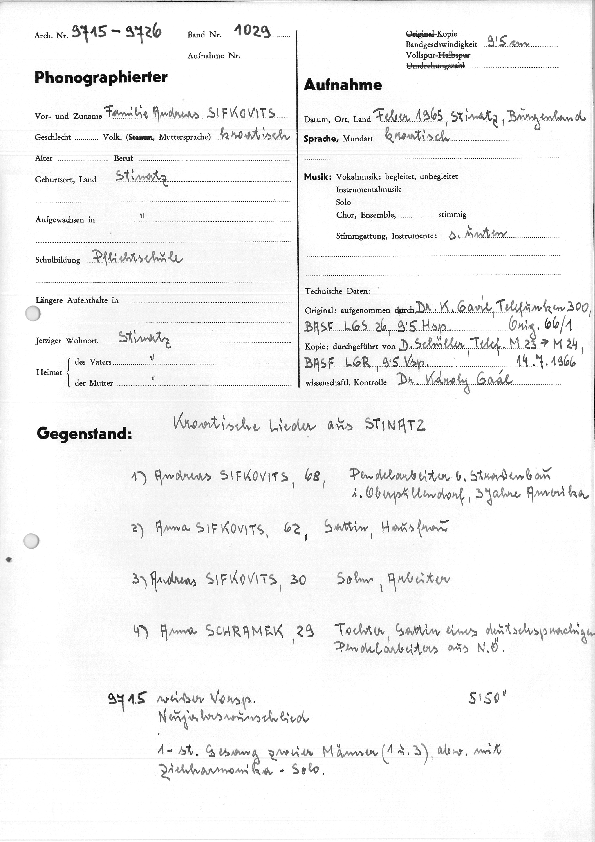 Arch. Nr. 9715 – 9726 Band Nr. 1029
Aufnahme Nr.
Original-Kopie
Bandgeschwindigkeit 9'5 cm
Vollspur-Halbspur
Phonographierter
Aufnahme
Vor- und Zuname Familie Andreas SIFKOVITS
Geschlecht Volk, (Stamm, Muttersprache) kroatisch
Alter Beruf
Geburtsort, Land Stinatz
Aufgewachsen in "
Schulbildung Pflichtschule
Längere Aufenthalte in
Jetziger Wohnort Stinatz
Heimat { des Vaters "
der Mutter "
Datum, Ort, Land Feber 1965, Stinatz, Burgenland
Sprache, Mundart kroatisch
Musik: Vokalmusik: begleitet, unbegleitet
Instrumentalmusik
Solo
Chor, Ensemble, stimmig
Stimmgattung, Instrumente: s. unten
Technische Daten:
Original: aufgenommen durch Dr. K. Gaál, Telefunken 300,
BASF LGS 26, 9'5 Hsp. Orig. 66/1
Kopie: durchgeführt von D. Schüller, Telef. M 23 → M 24,
BASF LGR, 9'5 Vsp. 14.7.1966
wissenschaftl. Kontrolle Dr. Károly Gaál
Gegenstand: Kroatische Lieder aus STINATZ
1) Andreas SIFKOVITS, 68, Pendelarbeiter b. Straßenbau
i. Oberpullendorf, 3 Jahre Amerika
2) Anna SIFKOVITS, 62, Gattin, Hausfrau
3) Andreas SIFKOVITS, 30 Sohn, Arbeiter
4) Anna SCHRAMEK, 29 Tochter, Gattin eines deutschsprachigen
Pendelarbeiters aus N.Ö.
9715 weißer Vorsp. 5'50"
Neujahrswunschlied
1-st. Gesang zweier Männer (1 u. 3), abw. mit
Ziehharmonika - Solo.